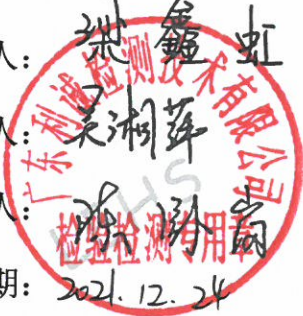 人：洪鑫虹
人：吴湘萍
人：陈
期：2021.12.24
广东利诚检测技术有限公司
检验检测专用章